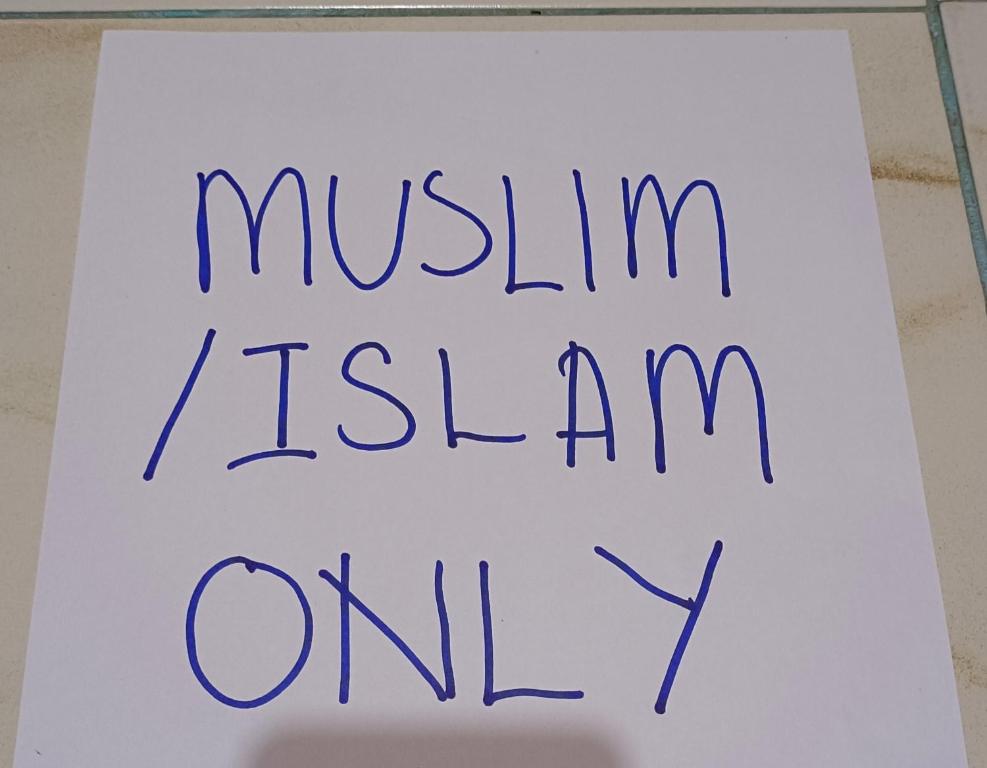 MUSLIM
/ISLAM
ONLY